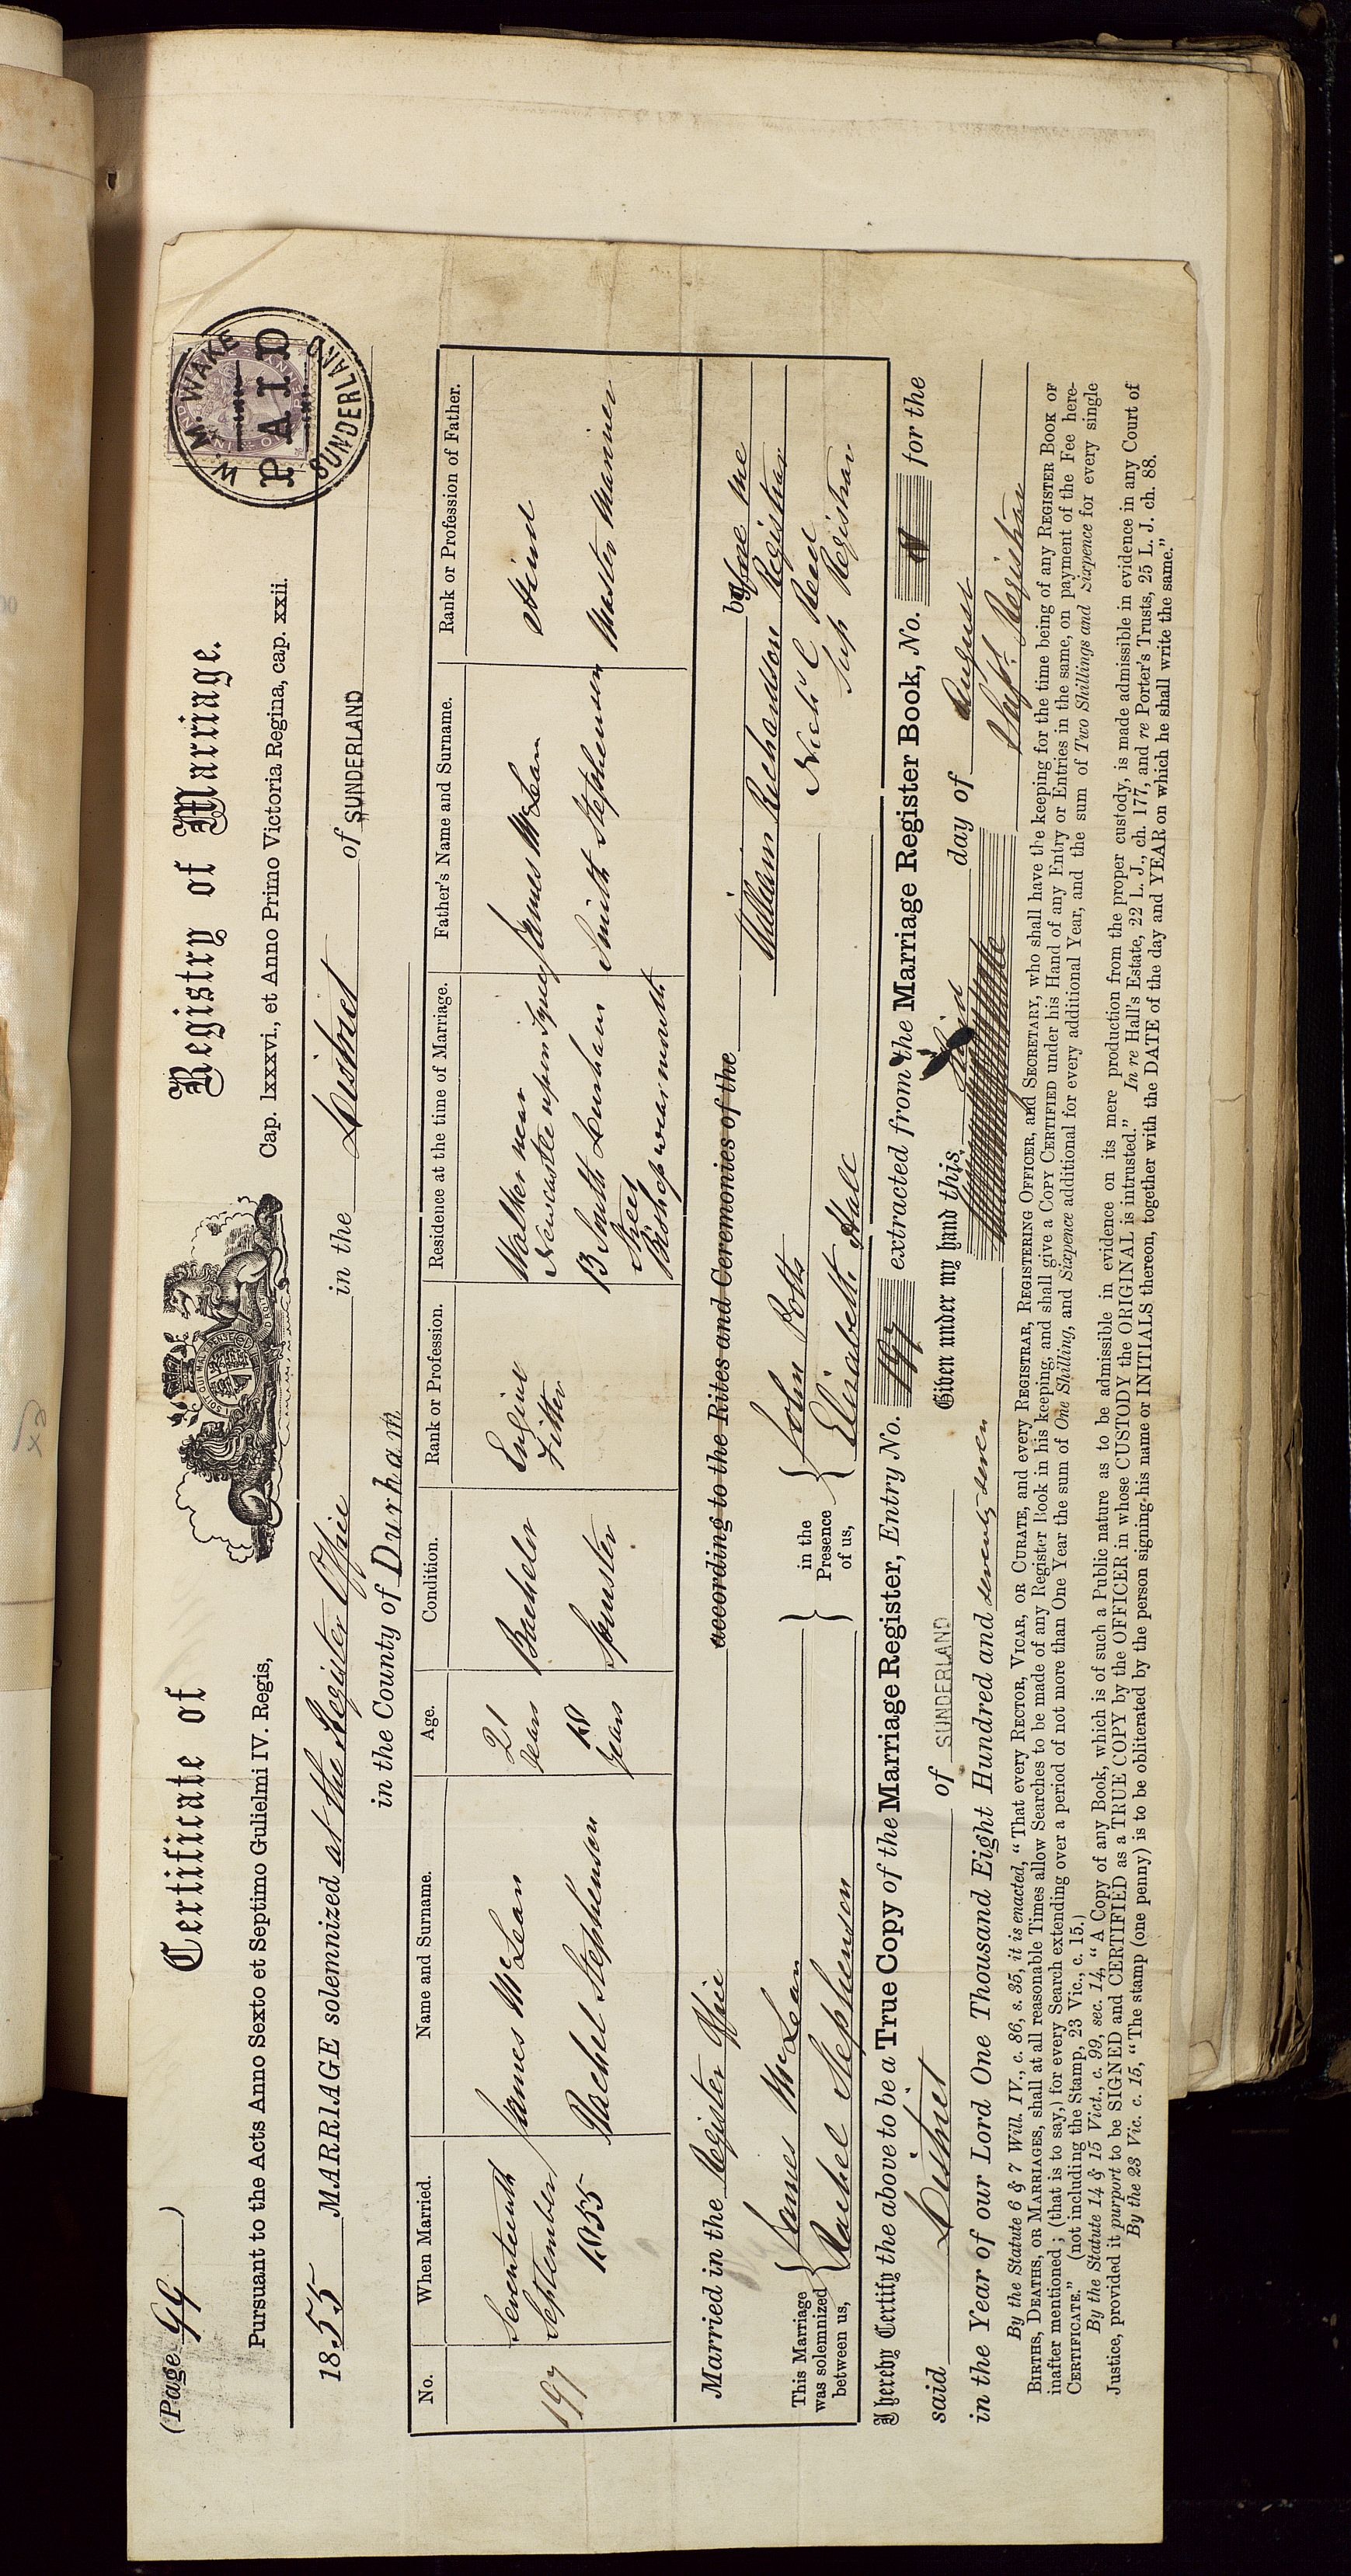 (Page 99)
Certificate of Registry of Marriage.
Pursuant to the Acts Anno Sexto et Septimo Gulielmi IV. Regis, Cap. lxxxvi., et Anno Primo Victoria Regina, cap. xxii.
W. M. WAKE
PAID
SUNDERLAND
1855 MARRIAGE solemnized at the Register Office in the District of SUNDERLAND
in the County of Durham
No. When Married. Name and Surname. Age. Condition. Rank or Profession. Residence at the time of Marriage. Father's Name and Surname. Rank or Profession of Father.
197 Seventeenth September 1855 James McLean 21 years Bachelor Engine Fitter Walker near Newcastle upon Tyne James McLean Hind
Rachel Stephenson 18 years Spinster 13 South Durham Street Bishopwearmouth Smith Stephenson Master Mariner
Married in the Register Office according to the Rites and Ceremonies of the before me
This Marriage was solemnized between us, James McLean Rachel Stephenson
in the Presence of us, John Potts Elisabeth Hale
William Richardson Registrar
Sup Registrar
I hereby Certify the above to be a True Copy of the Marriage Register, Entry No. 197 extracted from the Marriage Register Book, No. for the
said District of SUNDERLAND Given under my hand this third day of August
in the Year of our Lord One Thousand Eight Hundred and seventy seven Registrar
By the Statute 6 & 7 Will. IV., c. 86, s. 35, it is enacted, "That every RECTOR, VICAR, OR CURATE, and every REGISTRAR, REGISTERING OFFICER, and SECRETARY, who shall have the keeping for the time being of any REGISTER BOOK OF
BIRTHS, DEATHS, OR MARRIAGES, shall at all reasonable Times allow Searches to be made of any Register Book in his keeping, and shall give a COPY CERTIFIED under his Hand of any Entry or Entries in the same, on payment of the Fee here-
inafter mentioned; (that is to say,) for every Search extending over a period of not more than One Year the sum of One Shilling, and Sixpence additional for every additional Year, and the sum of Two Shillings and Sixpence for every single
CERTIFICATE." (not including the Stamp, 23 Vic., c. 15.)
By the Statute 14 & 15 Vict., c. 99, sec. 14, "A Copy of any Book, which is of such a Public nature as to be admissible in evidence on its mere production from the proper custody, is made admissible in evidence in any Court of
Justice, provided it purport to be SIGNED and CERTIFIED as a TRUE COPY by the OFFICER in whose CUSTODY the ORIGINAL is intrusted." In re Hall's Estate, 22 L. J., ch. 177, and re Porter's Trusts, 25 L. J. ch. 88.
By the 23 Vic. c. 15, "The stamp (one penny) is to be obliterated by the person signing his name or INITIALS thereon, together with the DATE of the day and YEAR on which he shall write the same."